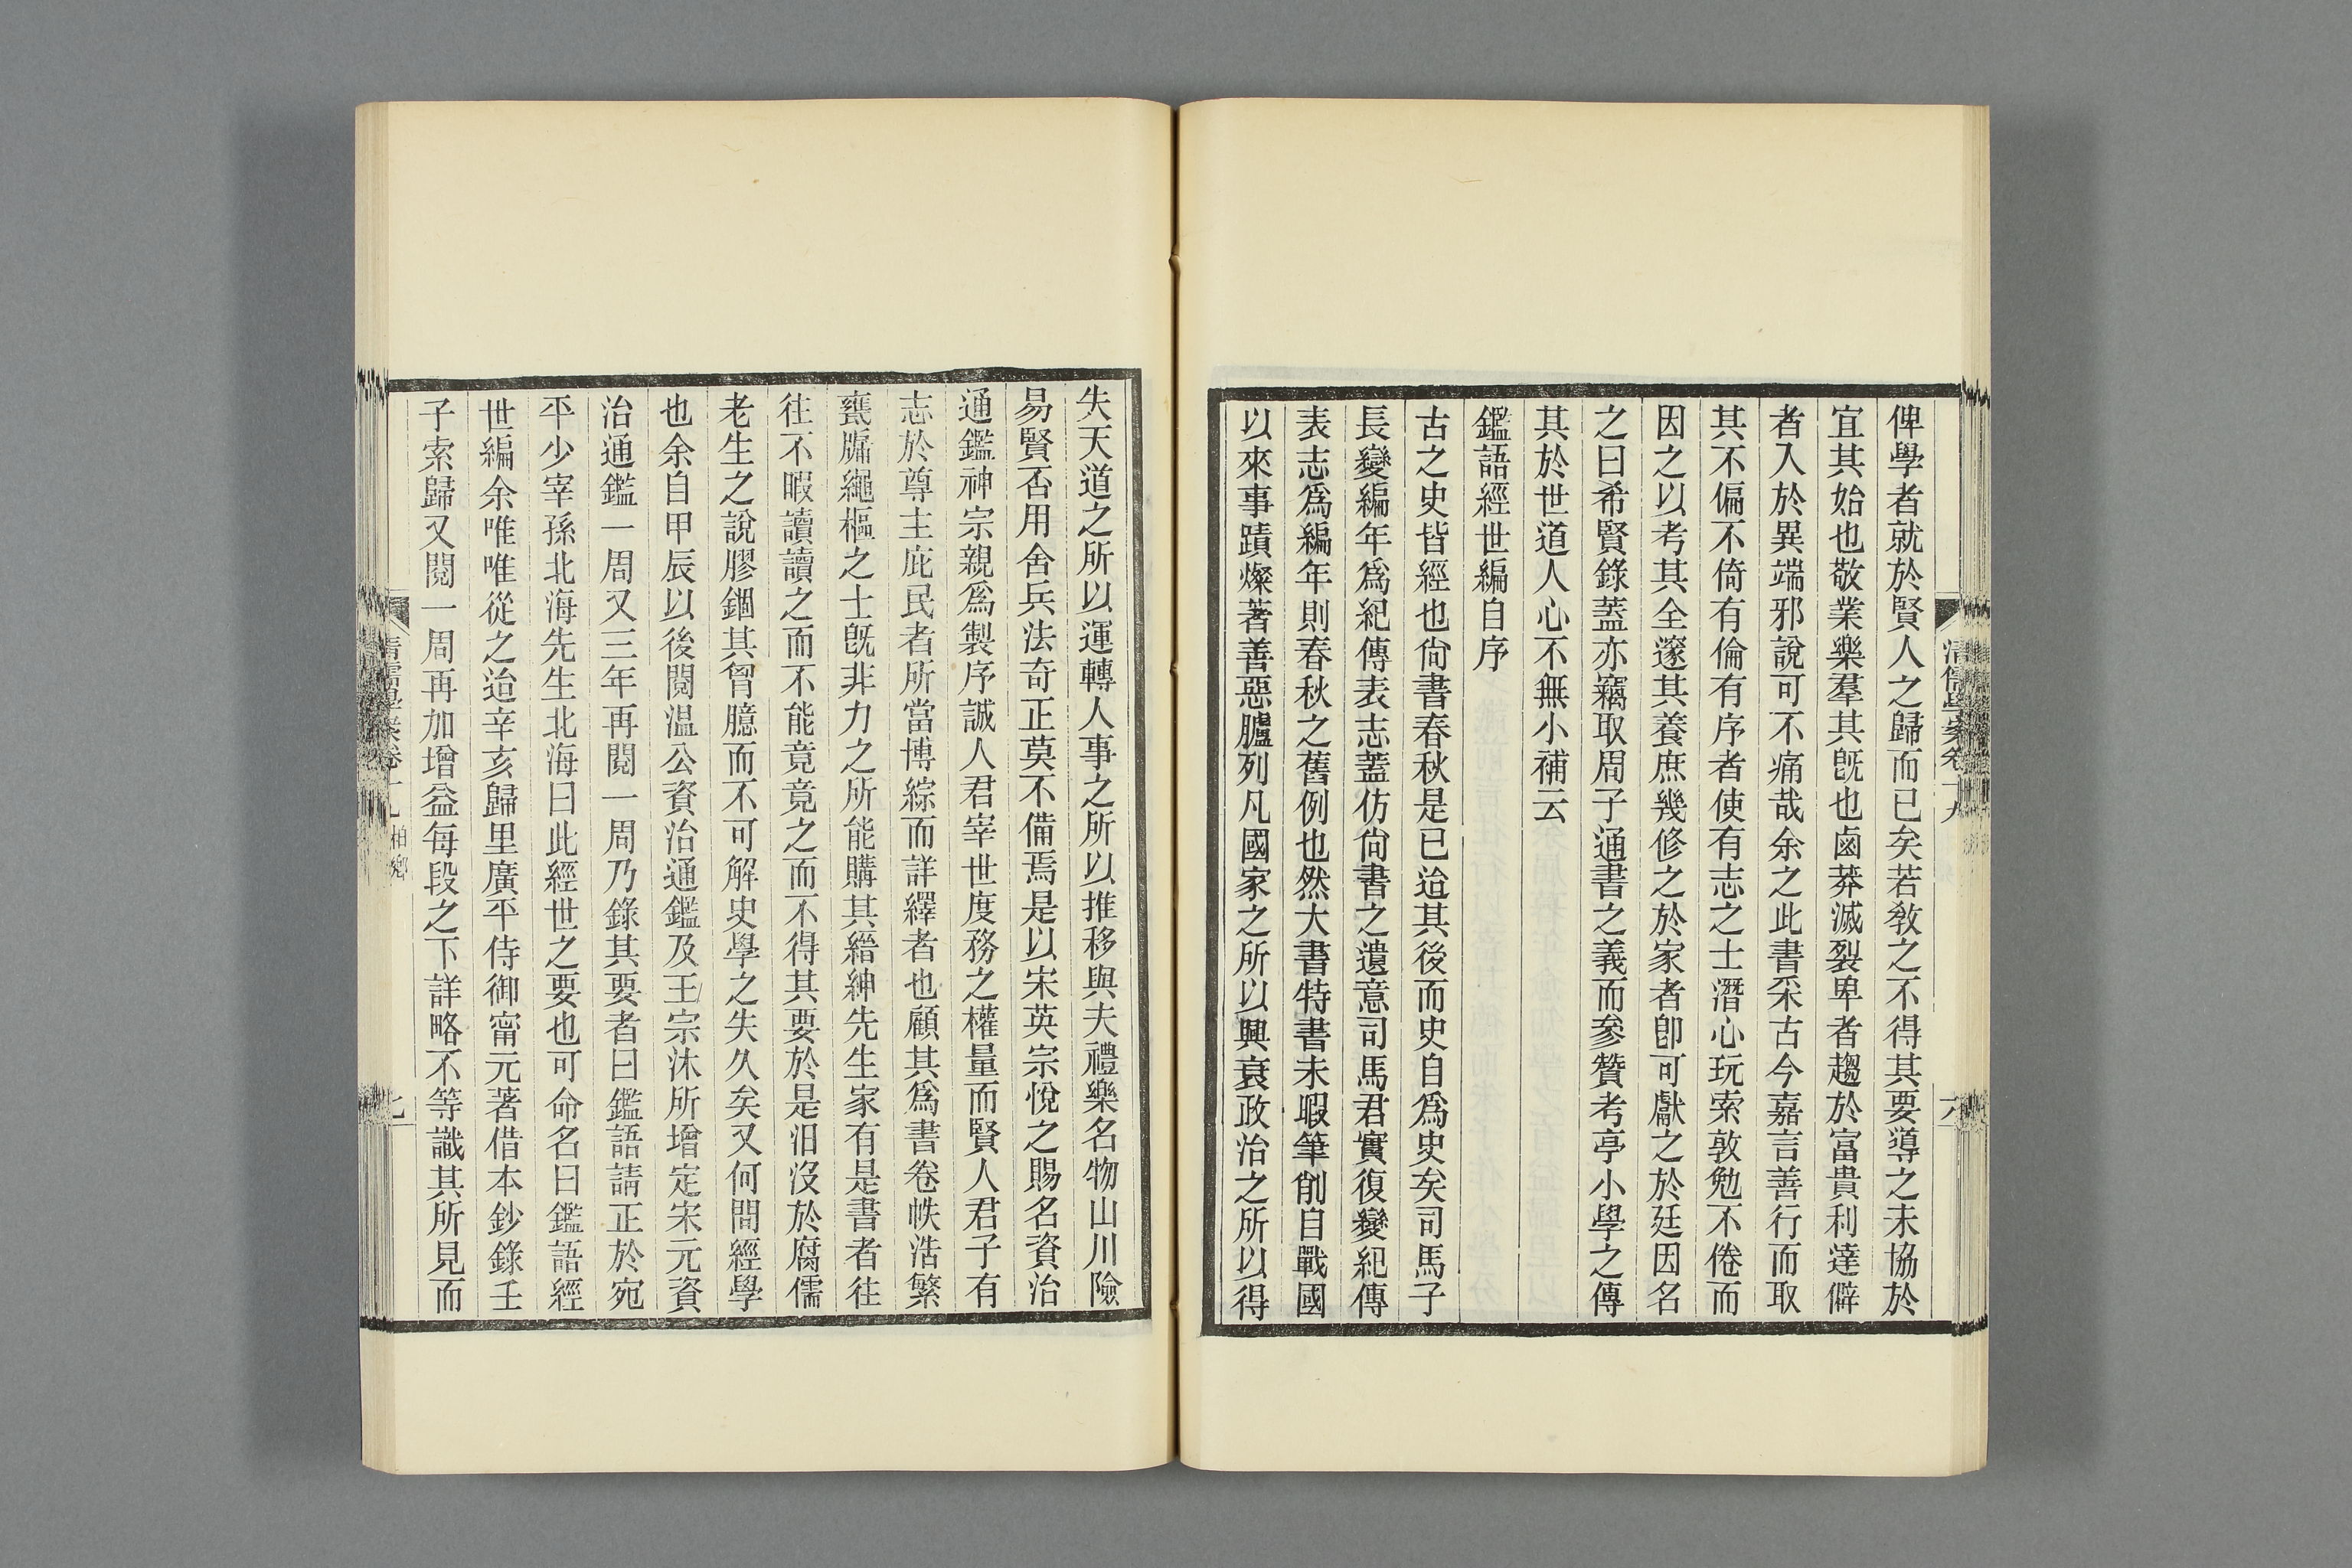 俾學者就於賢人之歸而已矣若敎之不得其要導之未協於
宜其始也敬業樂羣其旣也鹵莽滅裂卑者趨於富貴利達僻
者入於異端邪說可不痛哉余之此書采古今嘉言善行而取
其不偏不倚有倫有序者使有志之士潛心玩索敦勉不倦而
因之以考其全邃其養庶幾修之於家者卽可獻之於廷因名
之曰希賢錄蓋亦竊取周子通書之義而參贊考亭小學之傳
其於世道人心不無小補云
鑑語經世編自序
古之史皆經也尙書春秋是已迨其後而史自爲史矣司馬子
長變編年爲紀傳表志蓋仿尙書之遺意司馬君實復變紀傳
表志爲編年則春秋之舊例也然大書特書未暇筆削自戰國
以來事蹟燦著善惡臚列凡國家之所以興衰政治之所以得
失天道之所以運轉人事之所以推移與夫禮樂名物山川險
易賢否用舍兵法奇正莫不備焉是以宋英宗悅之賜名資治
通鑑神宗親爲製序誠人君宰世度務之權量而賢人君子有
志於尊主庇民者所當博綜而詳繹者也顧其爲書卷帙浩繁
甕牖繩樞之士旣非力之所能購其縉紳先生家有是書者往
往不暇讀讀之而不能竟竟之而不得其要於是汨沒於腐儒
老生之說膠錮其胷臆而不可解史學之失久矣又何間經學
也余自甲辰以後閱溫公資治通鑑及王宗沐所增定宋元資
治通鑑一周又三年再閱一周乃錄其要者曰鑑語請正於宛
平少宰孫北海先生北海曰此經世之要也可命名曰鑑語經
世編余唯唯從之迨辛亥歸里廣平侍御甯元著借本鈔錄壬
子索歸又閱一周再加增益每段之下詳略不等識其所見而
清儒學案卷十九
六
清儒學案卷十九 柏鄉
七